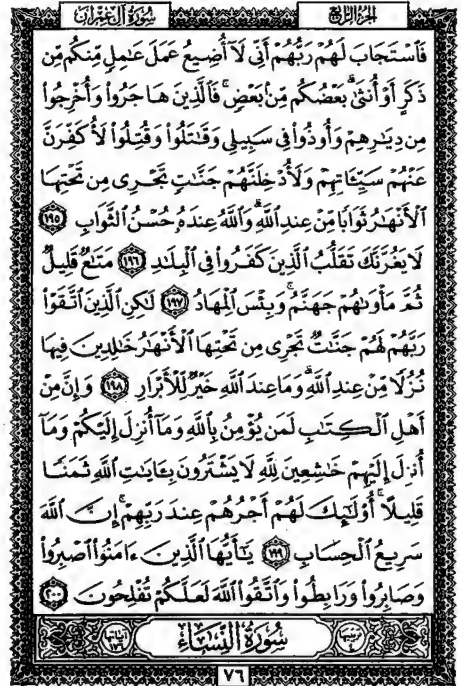 سُورَةُ آلِ عِمْرَان
الجزء الرابع
فَٱسْتَجَابَ لَهُمْ رَبُّهُمْ أَنِّى لَآ أُضِيعُ عَمَلَ عَٰمِلٍ مِّنكُم مِّن
ذَكَرٍ أَوْ أُنثَىٰۖ بَعْضُكُم مِّنۢ بَعْضٍۖ فَٱلَّذِينَ هَاجَرُوا۟ وَأُخْرِجُوا۟
مِن دِيَٰرِهِمْ وَأُوذُوا۟ فِى سَبِيلِى وَقَٰتَلُوا۟ وَقُتِلُوا۟ لَأُكَفِّرَنَّ
عَنْهُمْ سَيِّـَٔاتِهِمْ وَلَأُدْخِلَنَّهُمْ جَنَّٰتٍ تَجْرِى مِن تَحْتِهَا
ٱلْأَنْهَٰرُ ثَوَابًا مِّنْ عِندِ ٱللَّهِۗ وَٱللَّهُ عِندَهُۥ حُسْنُ ٱلثَّوَابِ ١٩٥
لَا يَغُرَّنَّكَ تَقَلُّبُ ٱلَّذِينَ كَفَرُوا۟ فِى ٱلْبِلَٰدِ ١٩٦ مَتَٰعٌ قَلِيلٌ
ثُمَّ مَأْوَىٰهُمْ جَهَنَّمُۚ وَبِئْسَ ٱلْمِهَادُ ١٩٧ لَٰكِنِ ٱلَّذِينَ ٱتَّقَوْا۟
رَبَّهُمْ لَهُمْ جَنَّٰتٌ تَجْرِى مِن تَحْتِهَا ٱلْأَنْهَٰرُ خَٰلِدِينَ فِيهَا
نُزُلًا مِّنْ عِندِ ٱللَّهِۗ وَمَا عِندَ ٱللَّهِ خَيْرٌ لِّلْأَبْرَارِ ١٩٨ وَإِنَّ مِنْ
أَهْلِ ٱلْكِتَٰبِ لَمَن يُؤْمِنُ بِٱللَّهِ وَمَآ أُنزِلَ إِلَيْكُمْ وَمَآ
أُنزِلَ إِلَيْهِمْ خَٰشِعِينَ لِلَّهِ لَا يَشْتَرُونَ بِـَٔايَٰتِ ٱللَّهِ ثَمَنًا
قَلِيلًاۗ أُو۟لَٰٓئِكَ لَهُمْ أَجْرُهُمْ عِندَ رَبِّهِمْۗ إِنَّ ٱللَّهَ
سَرِيعُ ٱلْحِسَابِ ١٩٩ يَٰٓأَيُّهَا ٱلَّذِينَ ءَامَنُوا۟ ٱصْبِرُوا۟
وَصَابِرُوا۟ وَرَابِطُوا۟ وَٱتَّقُوا۟ ٱللَّهَ لَعَلَّكُمْ تُفْلِحُونَ ٢٠٠
ترتيبها ٤ سُورَةُ النِّسَاءِ آياتها ١٧٦
٧٦